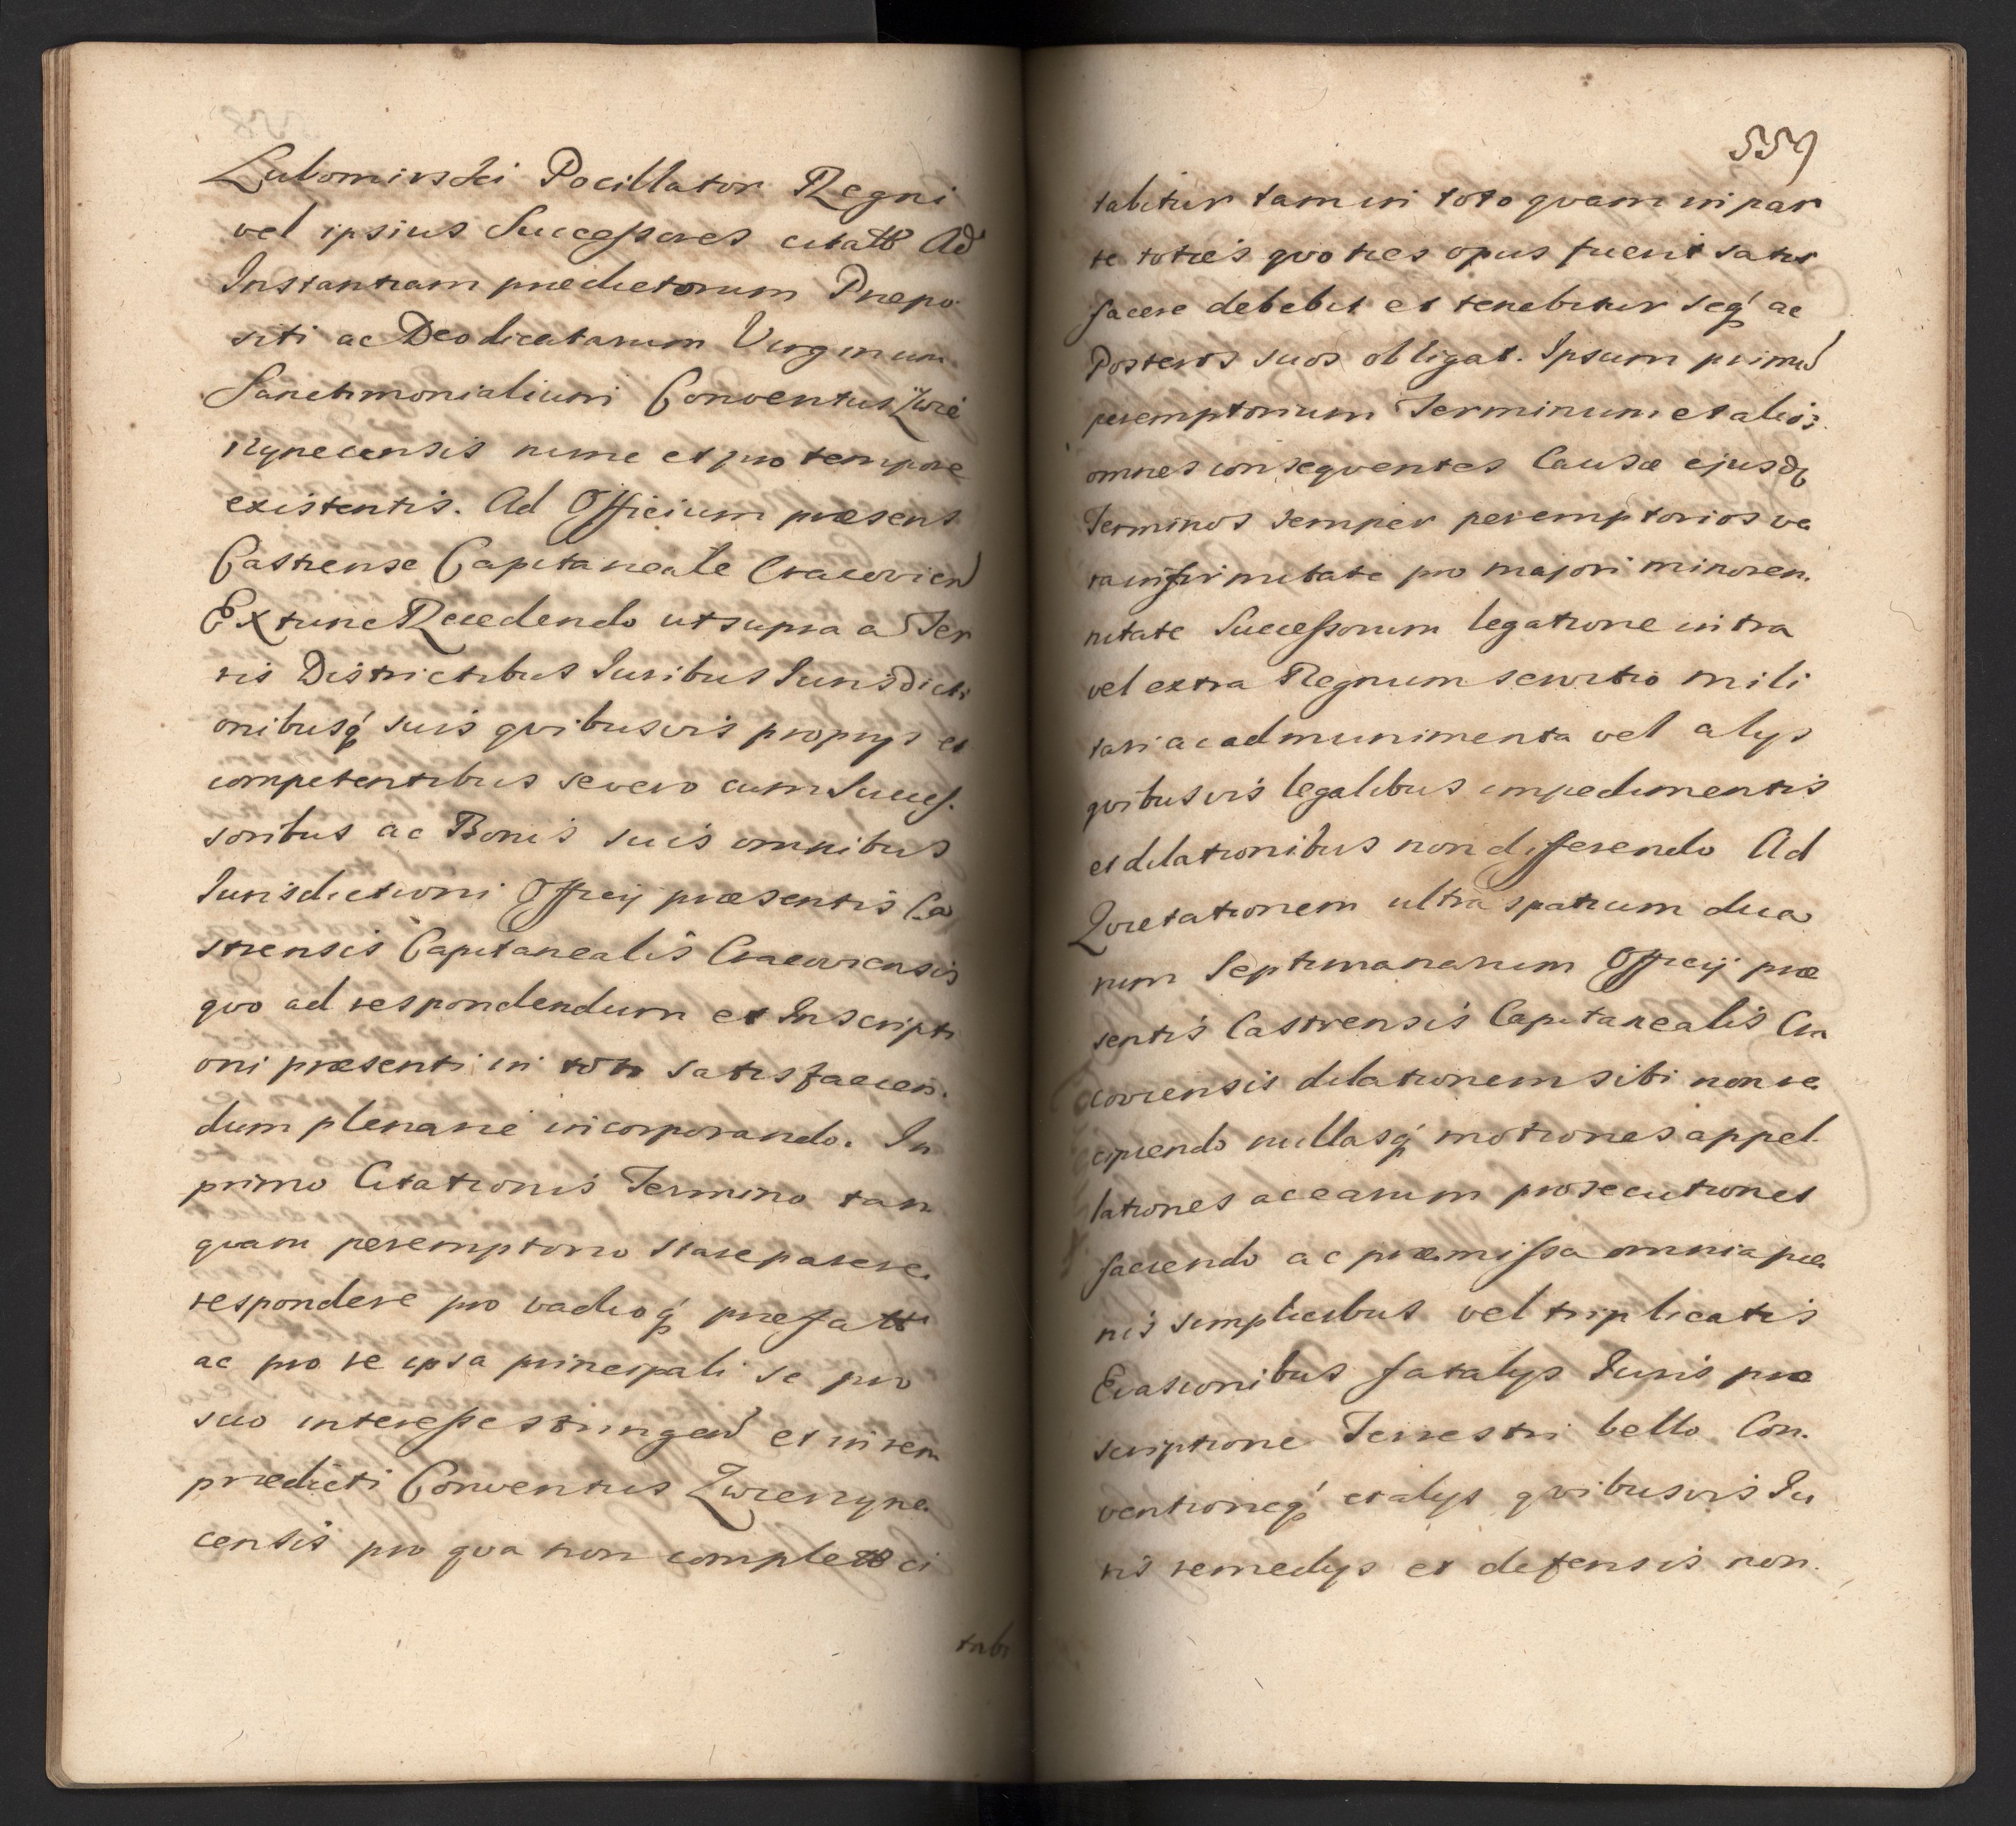 Lubomirski Pocillator Regni
vel ipsius Successores citatt Ad
Instantiam praedictorum Praepo
siti ac Deo dicatarum Virginum
Sanctimonialium Conventus Zwie
rzynecensis nunc et pro tempore
existentis. Ad Officium praesens
Castrense Capitaneale Cracovien
Ex tunc Recedendo ut supra a Ter
ris Districtibus Iuribus Iurisdicti
onibusq suis qvibusvis proprys et
competentibus se vero cum Succes.
soribus ac Bonis suis omnibus
Iurisdictioni Officij praesentis Ca
strensis Capitanealis Cracoviensis
qvo ad respondendum et Inscripti
oni praesenti in toto satisfacien.
dum plenarie incorporando. In
primo Citationis Termino tan
qvam peremptorio stare parere
respondere pro vadioq praefatt
ac pro re ipsa principali se pro
suo interesse stringen et in rem
praedicti Conventus Zwierzyne
censis pro qva non complett ci
tabi
559
tabitur tam in toto qvam in par
te toties qvoties opus fuerit satis
facere debebit et tenebitur seq ac
Posteros suos obligat. Ipsum primu
peremptorium Terminum et alios
omnes conseqventes Causae ejusd
Terminos semper peremptorios ve
ra infirmitate pro majori minoren.
nitate Successorum legatione intra
vel extra Regnum servitio mili
tari ac ad munimenta vel alys
qvibusvis legalibus impedimentis
et dilationibus non differendo Ad
Qvietationem ultra spatium dua
rum Septimanarum Officij prae
sentis Castrensis Capitanealis Cra
coviensis dilationem sibi non re
cipiendo nullasq motiones appel.
lationes ac earum prosecutiones
faciendo ac praemissa omnia pae
nis simplicibus vel triplicatis
Evasionibus fatalys Iuris prae
scriptione Terrestri bello Con.
ventioneq et alys qvibusvis Iu
ris remedys et defensis non.